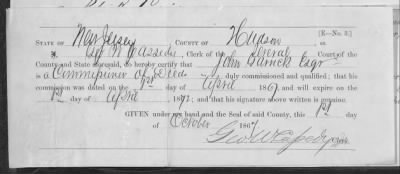 [R—No. 3.]
STATE OF New Jersey COUNTY OF Hudson
I, Clerk of the Court of the
County and State aforesaid, do hereby certify that John Garrick Esqr
is a Commissioner of Deeds duly commissioned and qualified; that his
commission was dated on the 1st day of April 1867, and will expire on the
1st day of April 1872; and that his signature above written is genuine.
GIVEN under my hand and the Seal of said County, this 1st day
of October 1867
Geo W Cassedy